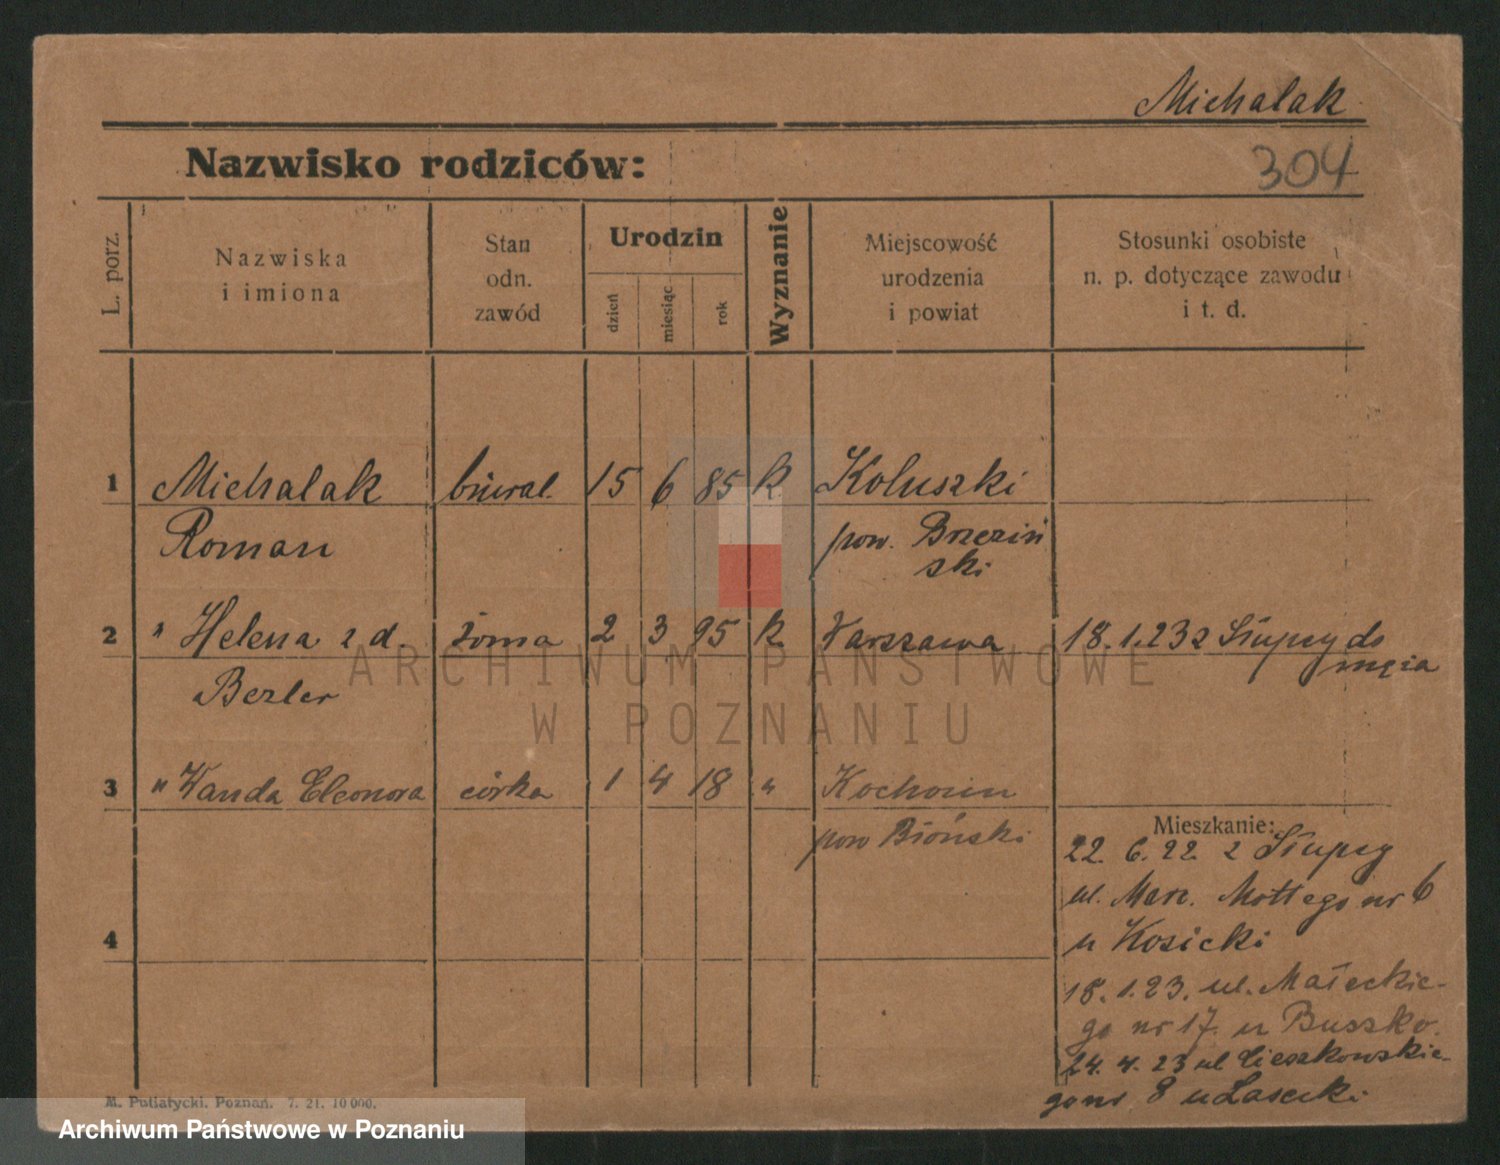 Michalak
304
Nazwisko rodziców:
L. porz.
Nazwiska
i imiona
Stan
odn.
zawód
Urodzin
dzień
miesiąc
rok
Wyznanie
Miejscowość
urodzenia
i powiat
Stosunki osobiste
n. p. dotyczące zawodu
i t. d.
1 Michalak biural. 15 6 85 k Koluszki
Roman pow. Brzeziń
ski
2 " Helena z d. żona 2 3 95 k Warszawa 18.1.23 z Słupcy do
męża
Bezler
3 " Wanda Eleonora córka 1 4 18 " Kochowin
pow Błoński
Mieszkanie:
22. 6. 22. z Słupcy
ul. Marc. Mottego nr 6
u Kosicki
4
18.1.23. ul. Małeckie-
go nr 17. u Buszko.
24. 4. 23 ul Cieszkowskie-
go nr 8 u Lasecki
M. Putiatycki, Poznań. 7. 21. 10 000.
ARCHIWUM PAŃSTWOWE
W POZNANIU
Archiwum Państwowe w Poznaniu